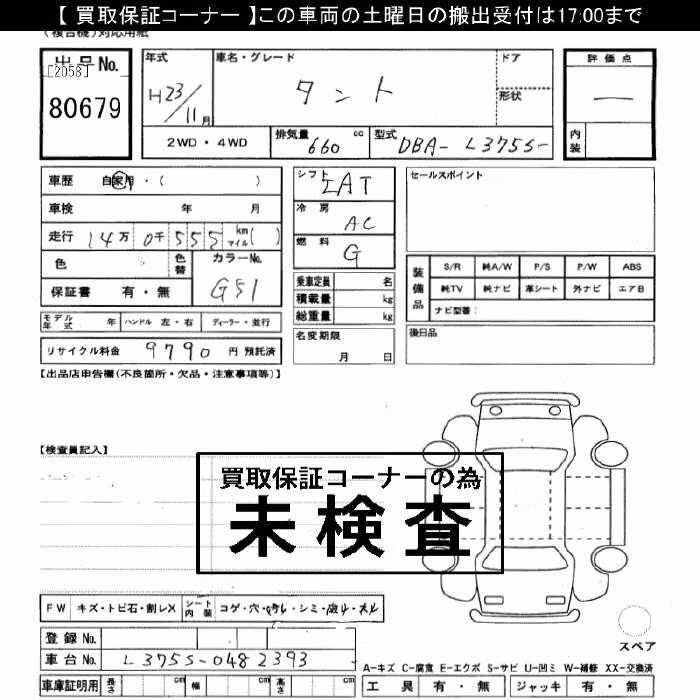 【 買取保証コーナー 】この車両の土曜日の搬出受付は17:00まで
(複合機)対応用紙
出品No.
[2058]
80679
年式
H23/11月
車名・グレード
タント
ドア
形状
評価点
—
内装
2WD・4WD
排気量 660 cc
型式 DBA-L375S-
車歴 自家用・( )
車検 年 月
走行 14万0千555 km マイル( )
色
色替
カラーNo.
G51
保証書 有・無
シフト IAT
冷房 AC
燃料 G
乗車定員 名
積載量 kg
総重量 kg
名変期限
月 日
セールスポイント
装備品
S/R 純A/W P/S P/W ABS
純TV 純ナビ 革シート 外ナビ エアB
ナビ型番:
後日品
モデル年式 年 ハンドル 左・右 ディーラー・並行
リサイクル料金 9790 円 預託済
【出品店申告欄(不良箇所・欠品・注意事項等)】
【検査員記入】
買取保証コーナーの為
未検査
FW キズ・トビ石・割レX シート内装 コゲ・穴・切レ・シミ・破レ・スレ
登録 No.
車台 No. L375S-0482393
車庫証明用 長さ cm 幅 cm 高さ cm
スペア
A-キズ C-腐食 E-エクボ S-サビ U-凹ミ W-補修 XX-交換済
工具 有・無 ジャッキ 有・無